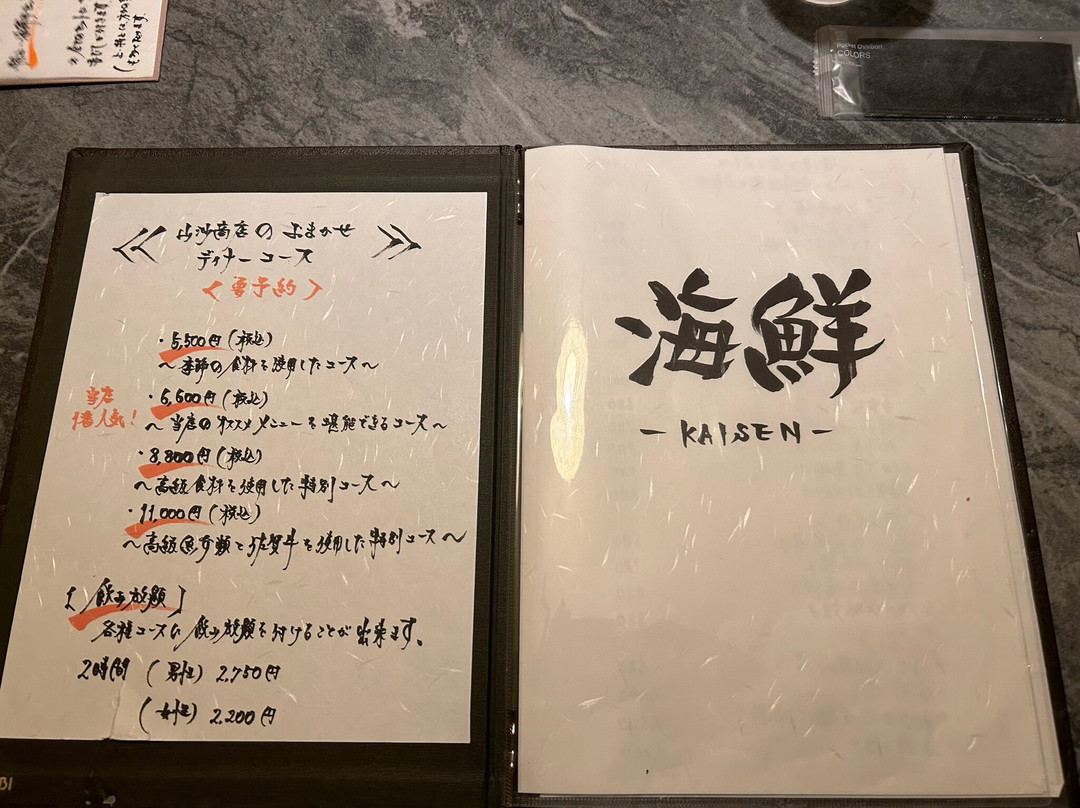 山沙商店のおまかせ
ディナーコース
〈要予約〉
・5,500円(税込)
〜季節の食材を使用したコース〜
当店
1番人気！
・6,600円(税込)
〜当店のオススメメニューを堪能できるコース〜
・8,800円(税込)
〜高級食材を使用した特別コース〜
・11,000円(税込)
〜高級魚介類と佐賀牛を使用した特別コース〜
【飲み放題】
各種コースに飲み放題を付けることが出来ます。
2時間 (男性) 2,750円
(女性) 2,200円
海鮮
- KAISEN -
COLORS
BI